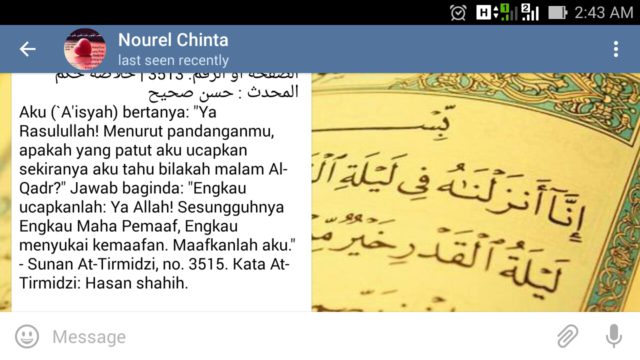 2:43 AM
Nourel Chinta
last seen recently
الصفحة أو الرقم: 3513 | خلاصة حكم
المحدث : حسن صحيح
Aku (`A'isyah) bertanya: "Ya
Rasulullah! Menurut pandanganmu,
apakah yang patut aku ucapkan
sekiranya aku tahu bilakah malam Al-
Qadr?" Jawab baginda: "Engkau
ucapkanlah: Ya Allah! Sesungguhnya
Engkau Maha Pemaaf, Engkau
menyukai kemaafan. Maafkanlah aku."
- Sunan At-Tirmidzi, no. 3515. Kata At-
Tirmidzi: Hasan shahih.
إِنَّا أَنزَلْنَاهُ فِي لَيْلَةِ
لَيْلَةُ الْقَدْرِ خَيْرٌ
Message